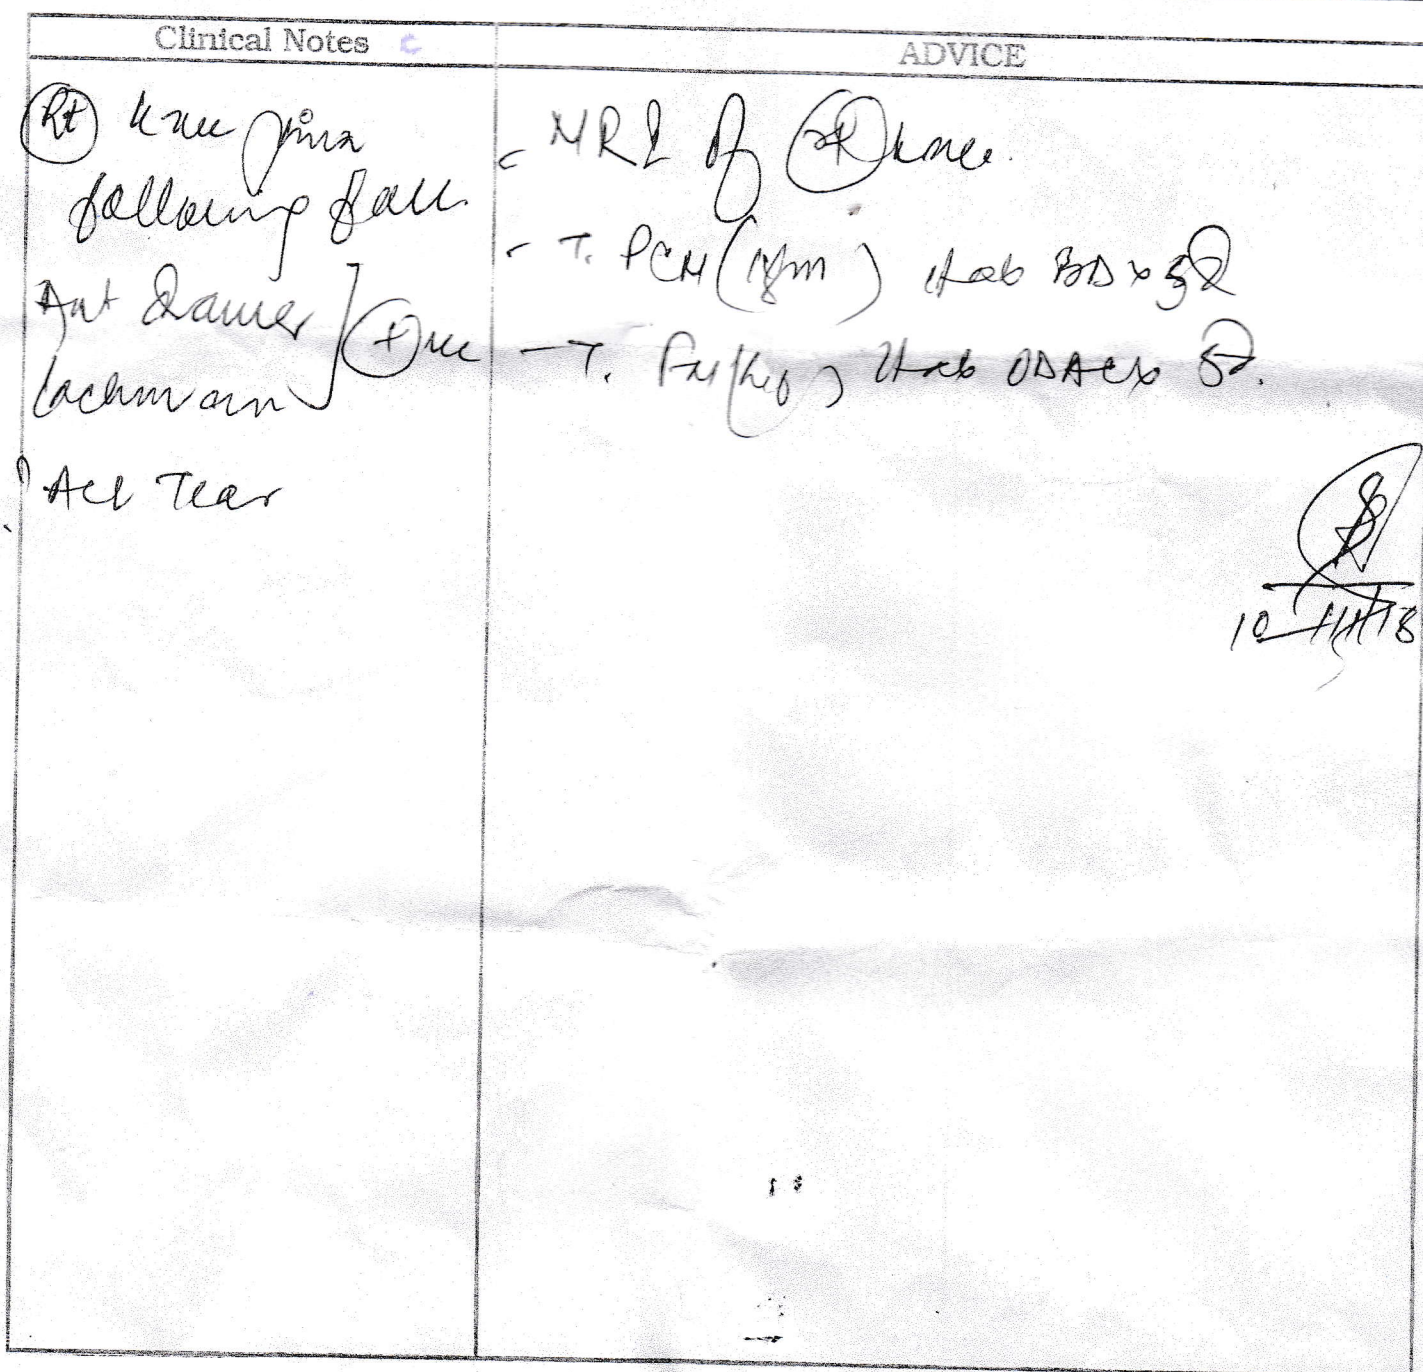 Clinical Notes
ADVICE
Rt knee pain
following fall.
Ant Drawer
Lachmann
(+)ve
? ACL Tear
- MRI of Rt knee.
- T. PCM (1gm) 1tab BD x 5d
- T. 1tab OD AC x 5d.
10/11/18